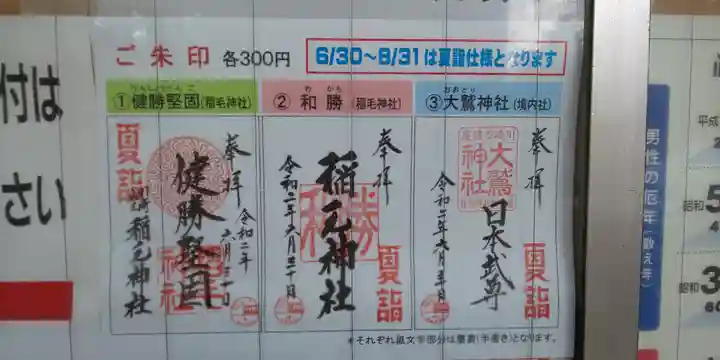 付は
さい
ご朱印 各300円
6/30～8/31は夏詣仕様となります
けんしょうけんご
①健勝堅固(稲毛神社)
奉拝
令和二年六月三十日
健勝堅固
川崎稲毛神社
夏詣
わ かち
② 和 勝 (稲毛神社)
奉拝
稲毛神社
和勝
令和二年六月三十日
夏詣
おおとり
③大鷲神社(境内社)
奉拝
大鷲神社
日本武尊
令和二年六月三十日
夏詣
＊それぞれ黒文字部分は墨書(手書き)となります。
男性の厄年(数え年)
平成
昭和
昭和